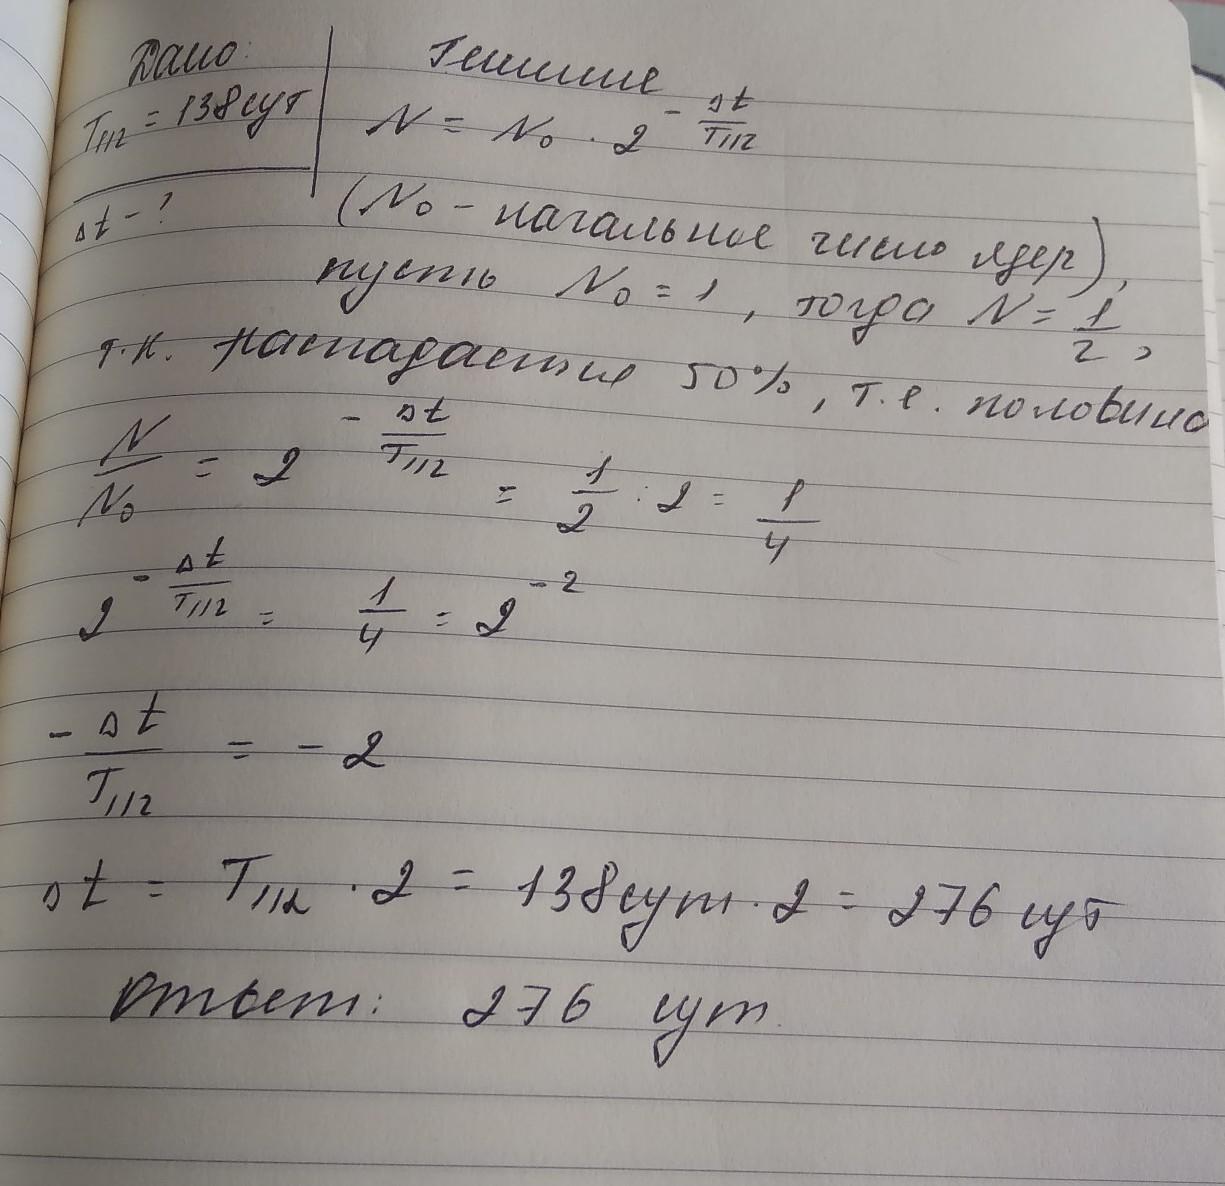 Дано:
Решение
T1/2 = 138сут
N = N0 · 2^(-Δt/T1/2)
Δt - ?
(N0 - начальное число ядер),
пусть N0 = 1, тогда N = 1/2,
т.к. распадается 50%, т.е. половина
N/N0 = 2^(-Δt/T1/2) = 1/2 : 2 = 1/4
2^(-Δt/T1/2) = 1/4 = 2^(-2)
-Δt/T1/2 = -2
Δt = T1/2 · 2 = 138сут · 2 = 276 сут
Ответ: 276 сут.